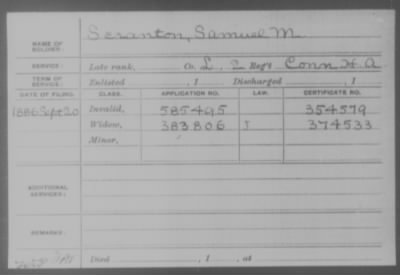 Scranton, Samuel M.
NAME OF SOLDIER:
SERVICE: Late rank, Co. L, 2 Reg't Conn H. A.
TERM OF SERVICE: Enlisted , 1 Discharged , 1
DATE OF FILING. CLASS. APPLICATION NO. LAW. CERTIFICATE NO.
1886 Sept 20 Invalid, 585495 354579
Widow, 383806 J 374533
Minor,
ADDITIONAL SERVICES:
REMARKS:
Died , 1 , at